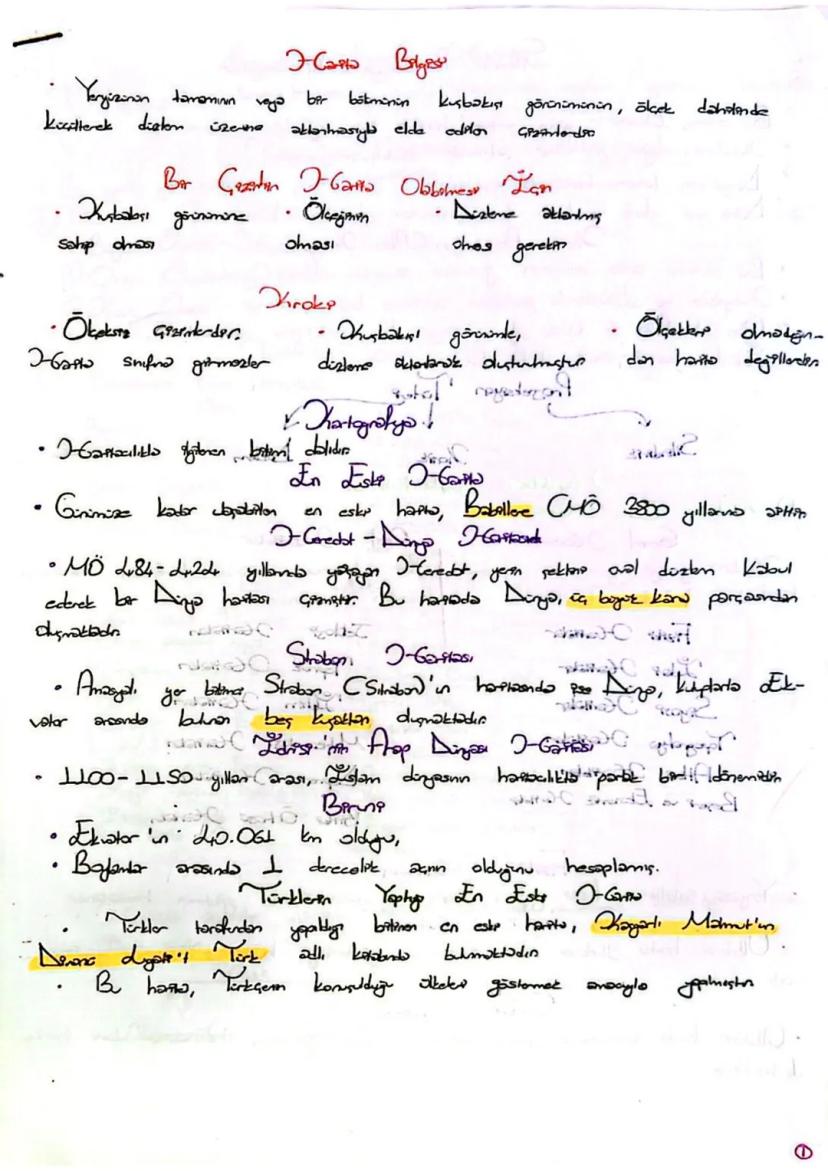 Harita Bilgisi
• Yeryüzünün tamamının veya bir bölümünün kuşbakışı görünümünün, ölçek dahilinde
küçültlerek düzlem üzerine aktarılmasıyla elde edilen çizimlerdir
Bir Çizimin Harita Olabilmesi İçin
• Kuşbakışı görünümüne • Ölçeğinin • Düzleme aktarılmış
sahip olması olması olması gerekir
Kroki
• Ölçeksiz çizimlerdir. • Kuşbakışı görünümle, • Ölçekleri olmadığın-
Harita sınıfına girmezler düzleme aktarılarak oluşturulmuştur dan harita değillerdir
Kartografya
• Haritacılıkla ilgilenen bilim dalıdır
En Eski Harita
• Günümüze kadar ulaşabilen en eski harita, Babillere (MÖ 3800 yıllarına aittir
Heredot - Dünya Haritası
• MÖ 484-424 yıllarında yaşayan Heredot, yerin şeklini oval düzlem kabul
ederek bir Dünya haritası çizmiştir. Bu haritada Dünya, üç büyük kara parçasından
oluşmaktadır
Strabon Haritası
• Amasyalı yer bilimci Strabon (Sitrabon)'ın haritasında Dünya, kutuplarla Ek-
vator arasında bulunan beş kuşaktan oluşmaktadır
İdrisi'nin Arap Dünyası Haritası
• 1100-1150 yılları arası, İslam dünyasının haritacılıkta parlak bir dönemidir
Biruni
• Ekvator'in 40.061 km olduğu,
• Boylamlar arasında 1 derecelik açının olduğunu hesaplamış.
Türklerin Yaptığı En Eski Harita
• Türkler tarafından yapıldığı bilinen en eski harita, Kaşgarlı Mahmut'un
Divanü Lugati't Türk adlı kitabında bulunmaktadır
• Bu harita, Türkçenin konuşulduğu ülkeleri göstermek amacıyla yapılmıştır
1